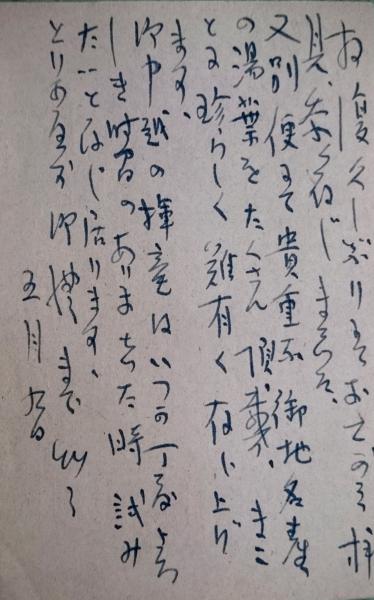 拝復久しぶりにておてがみ拝
見、忝く存じました、
又別便にて貴重な御地名産
の湯葉をたくさん頂戴、まこ
とに珍らしく難有く存じ上げ
ます、
御申越の揮毫はいつか丁度よろ
しき時間のありました時試み
たいと存じ居ります、
とりあへず御礼まで 艸々
五月九日